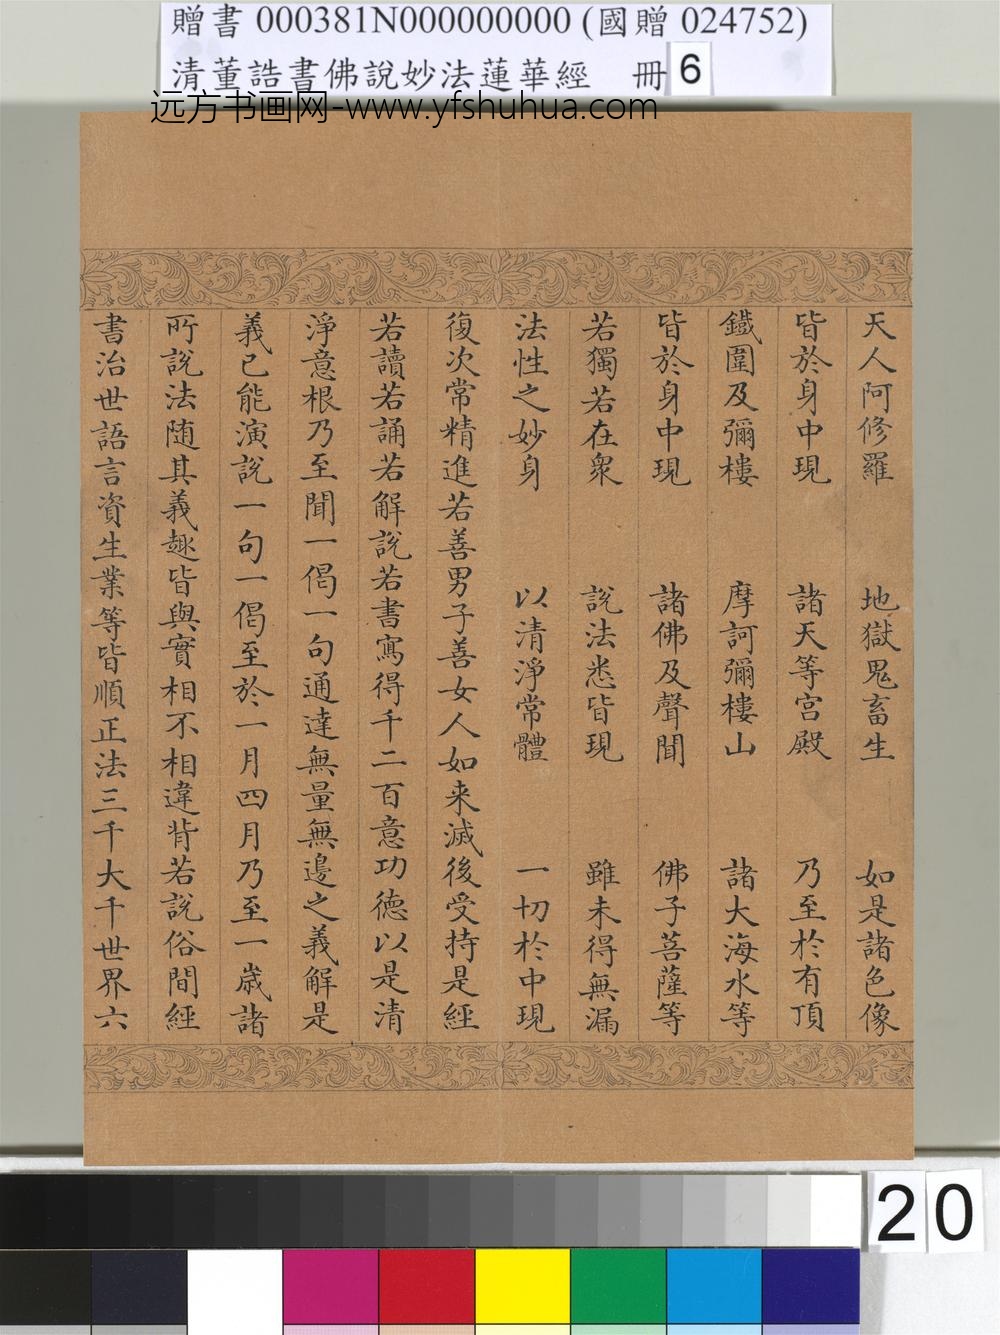 贈書 000381N000000000 (國贈 024752)
清董誥書佛說妙法蓮華經 冊 6
远方书画网-www.yfshuhua.com
天人阿修羅 地獄鬼畜生 如是諸色像
皆於身中現 諸天等宮殿 乃至於有頂
鐵圍及彌樓 摩訶彌樓山 諸大海水等
皆於身中現 諸佛及聲聞 佛子菩薩等
若獨若在眾 說法悉皆現 雖未得無漏
法性之妙身 以清淨常體 一切於中現
復次常精進若善男子善女人如来滅後受持是經
若讀若誦若解說若書寫得千二百意功德以是清
淨意根乃至聞一偈一句通達無量無邊之義解是
義已能演說一句一偈至於一月四月乃至一歲諸
所說法随其義趣皆與實相不相違背若說俗間經
書治世語言資生業等皆順正法三千大千世界六
20